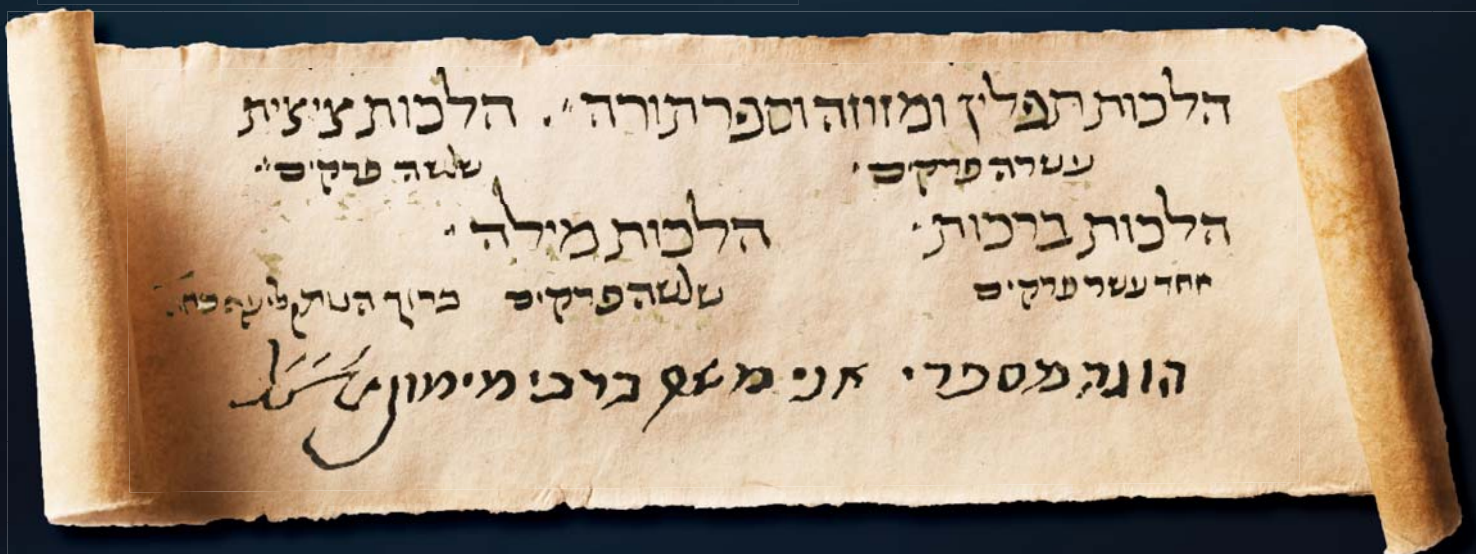 הלכות תפלין ומזוזה וספר תורה. הלכות ציצית
עשרה פרקים שלשה פרקים
הלכות ברכות הלכות מילה
אחד עשר פרקים שלשה פרקים ברוך
הוגה מספרי אני משה ברבי מימון זצ״ל